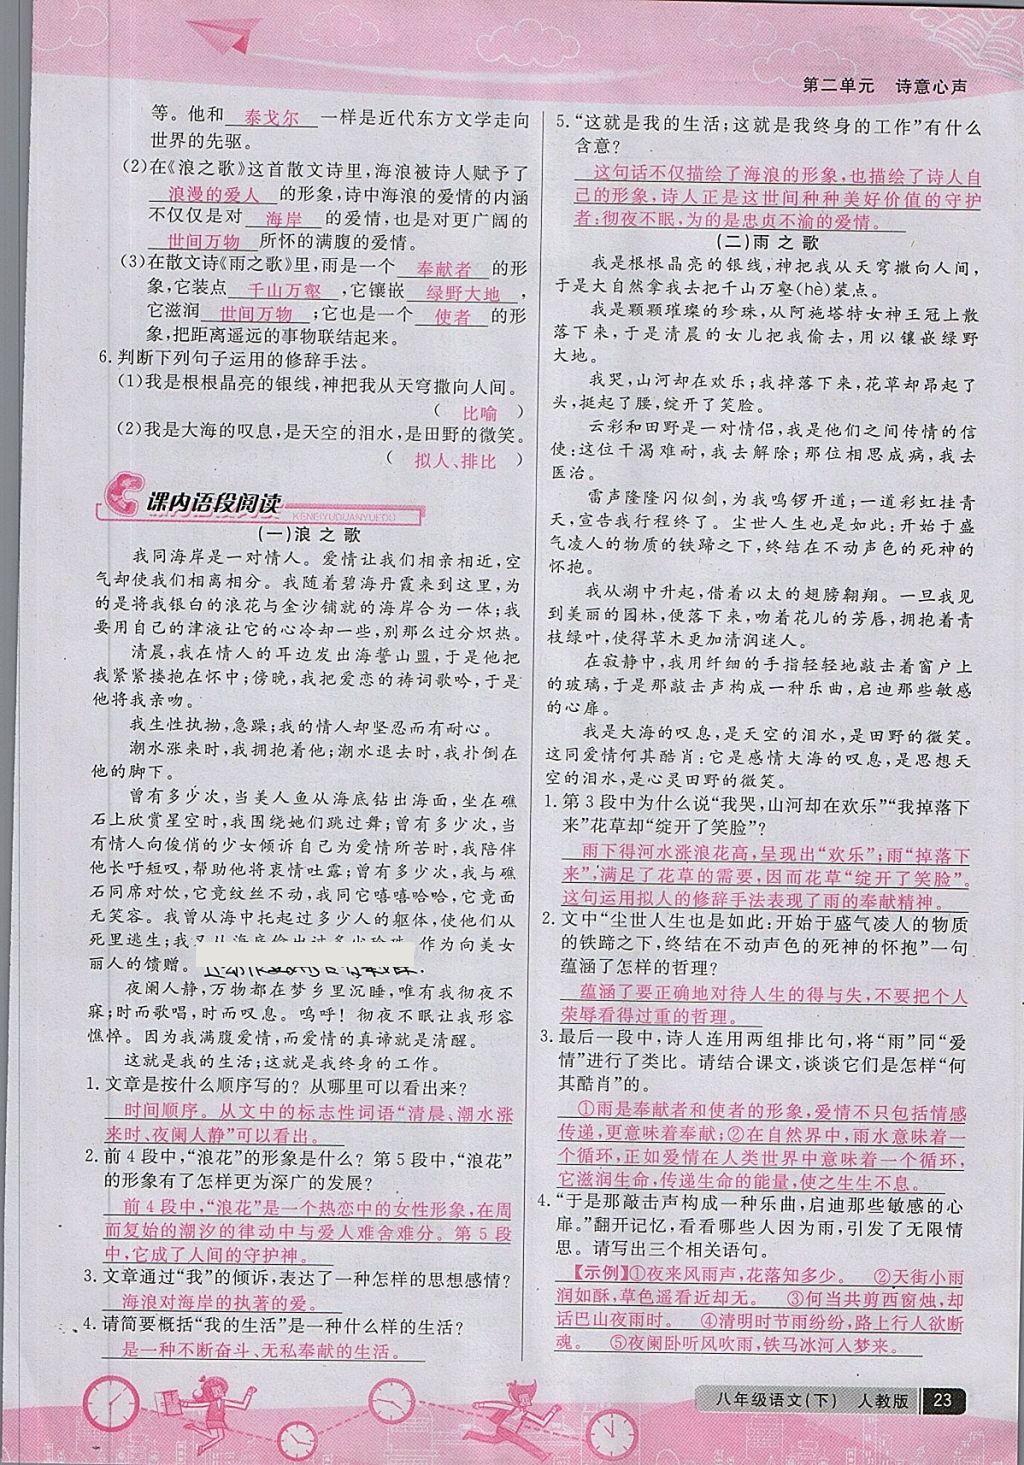 第二单元 诗意心声
等。他和 泰戈尔 一样是近代东方文学走向
世界的先驱。
(2)在《浪之歌》这首散文诗里,海浪被诗人赋予了
浪漫的爱人 的形象,诗中海浪的爱情的内涵
不仅仅是对 海岸 的爱情,也是对更广阔的
世间万物 所怀的满腹的爱情。
(3)在散文诗《雨之歌》里,雨是一个 奉献者 的形
象,它装点 千山万壑 ,它镶嵌 绿野大地 ,
它滋润 世间万物 ;它也是一个 使者 的形象,
把距离遥远的事物联结起来。
6.判断下列句子运用的修辞手法。
(1)我是根根晶亮的银线,神把我从天穹撒向人间。
( 比喻 )
(2)我是大海的叹息,是天空的泪水,是田野的微笑。
( 拟人、排比 )
课内语段阅读
KENEIYUDUANYUEDU
(一)浪之歌
我同海岸是一对情人。爱情让我们相亲相近,空
气却使我们相离相分。我随着碧海丹霞来到这里,为
的是将我银白的浪花与金沙铺就的海岸合为一体;我
要用自己的津液让它的心冷却一些,别那么过分炽热。
清晨,我在情人的耳边发出海誓山盟,于是他把
我紧紧搂抱在怀中;傍晚,我把爱恋的祷词歌吟,于是
他将我亲吻。
我生性执拗,急躁;我的情人却坚忍而有耐心。
潮水涨来时,我拥抱着他;潮水退去时,我扑倒在
他的脚下。
曾有多少次,当美人鱼从海底钻出海面,坐在礁
石上欣赏星空时,我围绕她们跳过舞;曾有多少次,当
有情人向俊俏的少女倾诉自己为爱情所苦时,我陪伴
他长吁短叹,帮助他将衷情吐露;曾有多少次,我与礁
石同席对饮,它竟纹丝不动,我同它嘻嘻哈哈,它竟面
无笑容。我曾从海中托起过多少人的躯体,使他们从
死里逃生;我又从海底偷出过多少珍珠,作为向美女
丽人的馈赠。
夜阑人静,万物都在梦乡里沉睡,唯有我彻夜不
寐;时而歌唱,时而叹息。呜呼!彻夜不眠让我形容
憔悴。因为我满腹爱情,而爱情的真谛就是清醒。
这就是我的生活;这就是我终身的工作。
1.文章是按什么顺序写的?从哪里可以看出来?
时间顺序。从文中的标志性词语“清晨、潮水涨
来时、夜阑人静”可以看出。
2.前4段中,“浪花”的形象是什么?第5段中,“浪花”
的形象有了怎样更为深广的发展?
前4段中,“浪花”是一个热恋中的女性形象,在周
而复始的潮汐的律动中与爱人难舍难分。第5段
中,它成了人间的守护神。
3.文章通过“我”的倾诉,表达了一种怎样的思想感情?
海浪对海岸的执著的爱。
4.请简要概括“我的生活”是一种什么样的生活?
是一种不断奋斗、无私奉献的生活。
5.“这就是我的生活;这就是我终身的工作”有什么
含意?
这句话不仅描绘了海浪的形象,也描绘了诗人自
己的形象,诗人正是这世间种种美好价值的守护
者;彻夜不眠,为的是忠贞不渝的爱情。
(二)雨之歌
我是根根晶亮的银线,神把我从天穹撒向人间,
于是大自然拿我去把千山万壑(hè)装点。
我是颗颗璀璨的珍珠,从阿施塔特女神王冠上散
落下来,于是清晨的女儿把我偷去,用以镶嵌绿野
大地。
我哭,山河却在欢乐;我掉落下来,花草却昂起了
头,挺起了腰,绽开了笑脸。
云彩和田野是一对情侣,我是他们之间传情的信
使:这位干渴难耐,我去解除;那位相思成病,我去
医治。
雷声隆隆闪似剑,为我鸣锣开道;一道彩虹挂青
天,宣告我行程终了。尘世人生也是如此:开始于盛
气凌人的物质的铁蹄之下,终结在不动声色的死神的
怀抱。
我从湖中升起,借着以太的翅膀翱翔。一旦我见
到美丽的园林,便落下来,吻着花儿的芳唇,拥抱着青
枝绿叶,使得草木更加清润迷人。
在寂静中,我用纤细的手指轻轻地敲击着窗户上
的玻璃,于是那敲击声构成一种乐曲,启迪那些敏感
的心扉。
我是大海的叹息,是天空的泪水,是田野的微笑。
这同爱情何其酷肖:它是感情大海的叹息,是思想天
空的泪水,是心灵田野的微笑。
1.第3段中为什么说“我哭,山河却在欢乐”“我掉落下
来”花草却“绽开了笑脸”?
雨下得河水涨浪花高,呈现出“欢乐”;雨“掉落下
来”,满足了花草的需要,因而花草“绽开了笑脸”。
这句运用拟人的修辞手法表现了雨的奉献精神。
2.文中“尘世人生也是如此:开始于盛气凌人的物质
的铁蹄之下,终结在不动声色的死神的怀抱”一句
蕴涵了怎样的哲理?
蕴涵了要正确地对待人生的得与失,不要把个人
荣辱看得过重的哲理。
3.最后一段中,诗人连用两组排比句,将“雨”同“爱
情”进行了类比。请结合课文,谈谈它们是怎样“何
其酷肖”的。
①雨是奉献者和使者的形象,爱情不只包括情感
传递,更意味着奉献;②在自然界中,雨水意味着一
个循环,正如爱情在人类世界中意味着一个循环,
它滋润生命,传递生命的能量,使之生生不息。
4.“于是那敲击声构成一种乐曲,启迪那些敏感的心
扉。”翻开记忆,看看哪些人因为雨,引发了无限情
思。请写出三个相关语句。
【示例】①夜来风雨声,花落知多少。 ②天街小雨
润如酥,草色遥看近却无。 ③何当共剪西窗烛,却
话巴山夜雨时。 ④清明时节雨纷纷,路上行人欲断
魂。 ⑤夜阑卧听风吹雨,铁马冰河入梦来。
八年级语文(下) 人教版 23